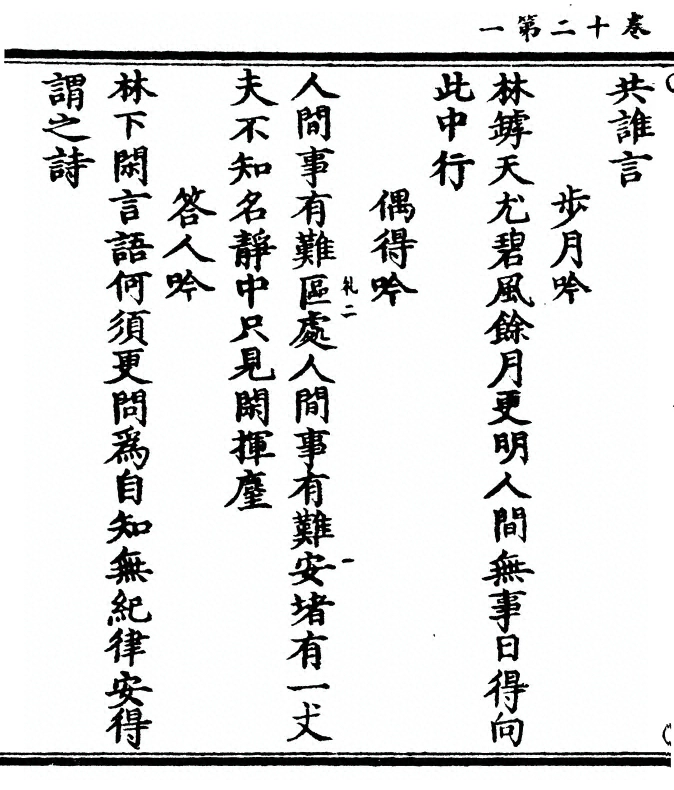 卷十二第一
共誰言
步月吟
林罅天尤碧風餘月更明人間無事日得向
此中行
偶得吟
人間事有難區處人間事有難安堵有一丈
夫不知名靜中只見閑揮麈
答人吟
林下閑言語何須更問爲自知無紀律安得
謂之詩